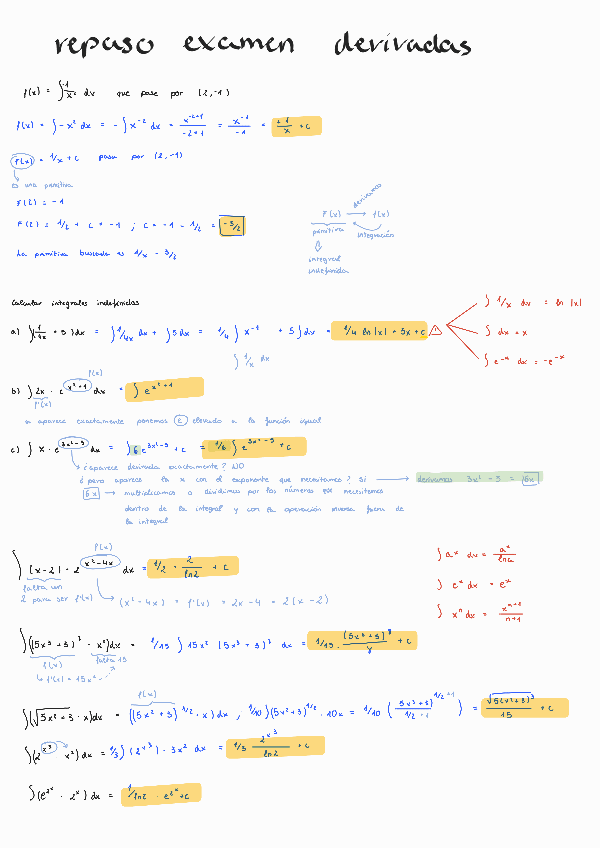 repaso examen derivadas
f(x) = ∫ -1/x² dx que pase por (2,-1)
f(x) = ∫ -x² dx = - ∫ x⁻² dx = x⁻²⁺¹/-2+1 = x⁻¹/-1 = +1/x + c
F(x) = 1/x + c pasa por (2,-1)
una primitiva
F(2) = -1
F(2) = 1/2 + c = -1 ; c = -1 - 1/2 = -3/2
La primitiva buscada es 1/x - 3/2
derivamos
F(x) → f(x)
primitiva integración
integral
indefinida
Calcular integrales indefinidas
a) ∫(1/4x + 5)dx = ∫1/4x dx + ∫5dx = 1/4 ∫ x⁻¹ + 5∫dx = 1/4 ln|x| + 5x + c
∫ 1/x dx
∫ 1/x dx = ln |x|
∫ dx = x
∫ e⁻ˣ dx = -e⁻ˣ
f(x)
b) ∫ 2x · e^(x²+1) dx = ∫ e^(x²+1)
f'(x)
si aparece exactamente ponemos e elevado a la función igual
c) ∫ x · e^(3x²-5) dx = ∫ 6 e^(3x²-5) + c = 1/6 ∫ e^(3x²-5) + c
¿aparece derivada exactamente? NO
¿pero aparece la x con el exponente que necesitamos? Si → derivamos 3x² - 5 = 6x
6x → multiplicamos o dividimos por los números que necesitemos
dentro de la integral y con la operación inversa fuera de
la integral
f(x)
∫ (x-2) · 2^(x²-4x) dx = 1/2 · 2/ln2 + c
falta un
2 para ser f'(x)
(x²-4x) = f'(x) = 2x - 4 = 2(x-2)
∫ aˣ dx = aˣ/lna
∫ eˣ dx = eˣ
∫ xⁿ dx = xⁿ⁺¹/n+1
∫((5x³+3)³ · x²)dx = 1/15 ∫ 15x² (5x³+3)³ dx = 1/15 · (5x³+3)⁴/4 + c
f(x) falta 15
f'(x) = 15x²
f(x)
∫(√5x²+3 · x)dx = ∫((5x²+3)^1/2 · x) dx , 1/10 ∫(5x²+3)^1/2 · 10x = 1/10 (5x²+3^(1/2+1)/1/2+1) = √5(x²+3)³/15 + c
∫(2^x³ · x²) dx = 1/3 ∫ (2^x³) · 3x² dx = 1/3 2^x³/ln2 + c
∫(e^2ˣ · 2ˣ) dx = 1/ln2 · e^2ˣ + c